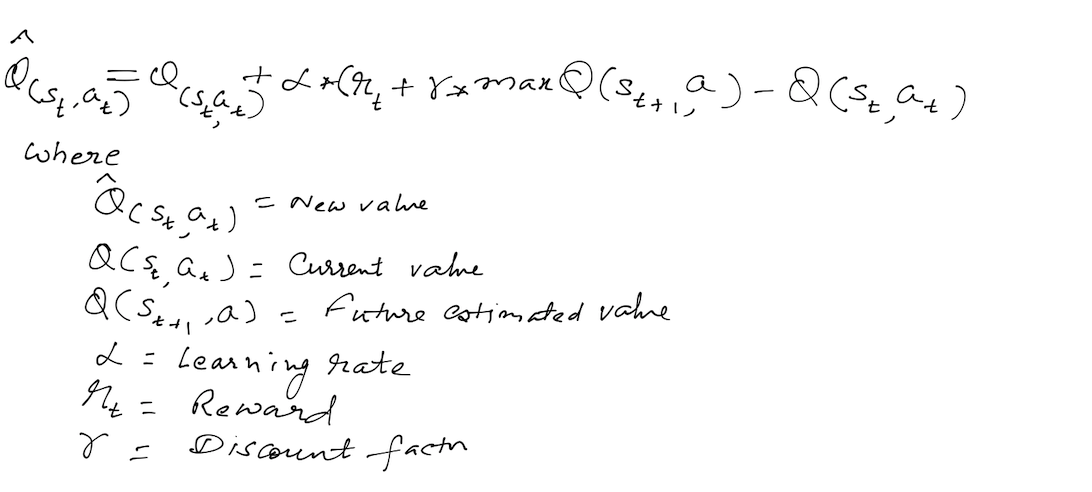 Q̂(sₜ, aₜ) = Q(sₜ, aₜ) + α *(rₜ + γ * max Q(Sₜ₊₁, a) - Q(sₜ, aₜ)
where
Q̂(sₜ, aₜ) = New value
Q(sₜ, aₜ) = Current value
Q(Sₜ₊₁, a) = Future estimated value
α = Learning rate
rₜ = Reward
γ = Discount factor